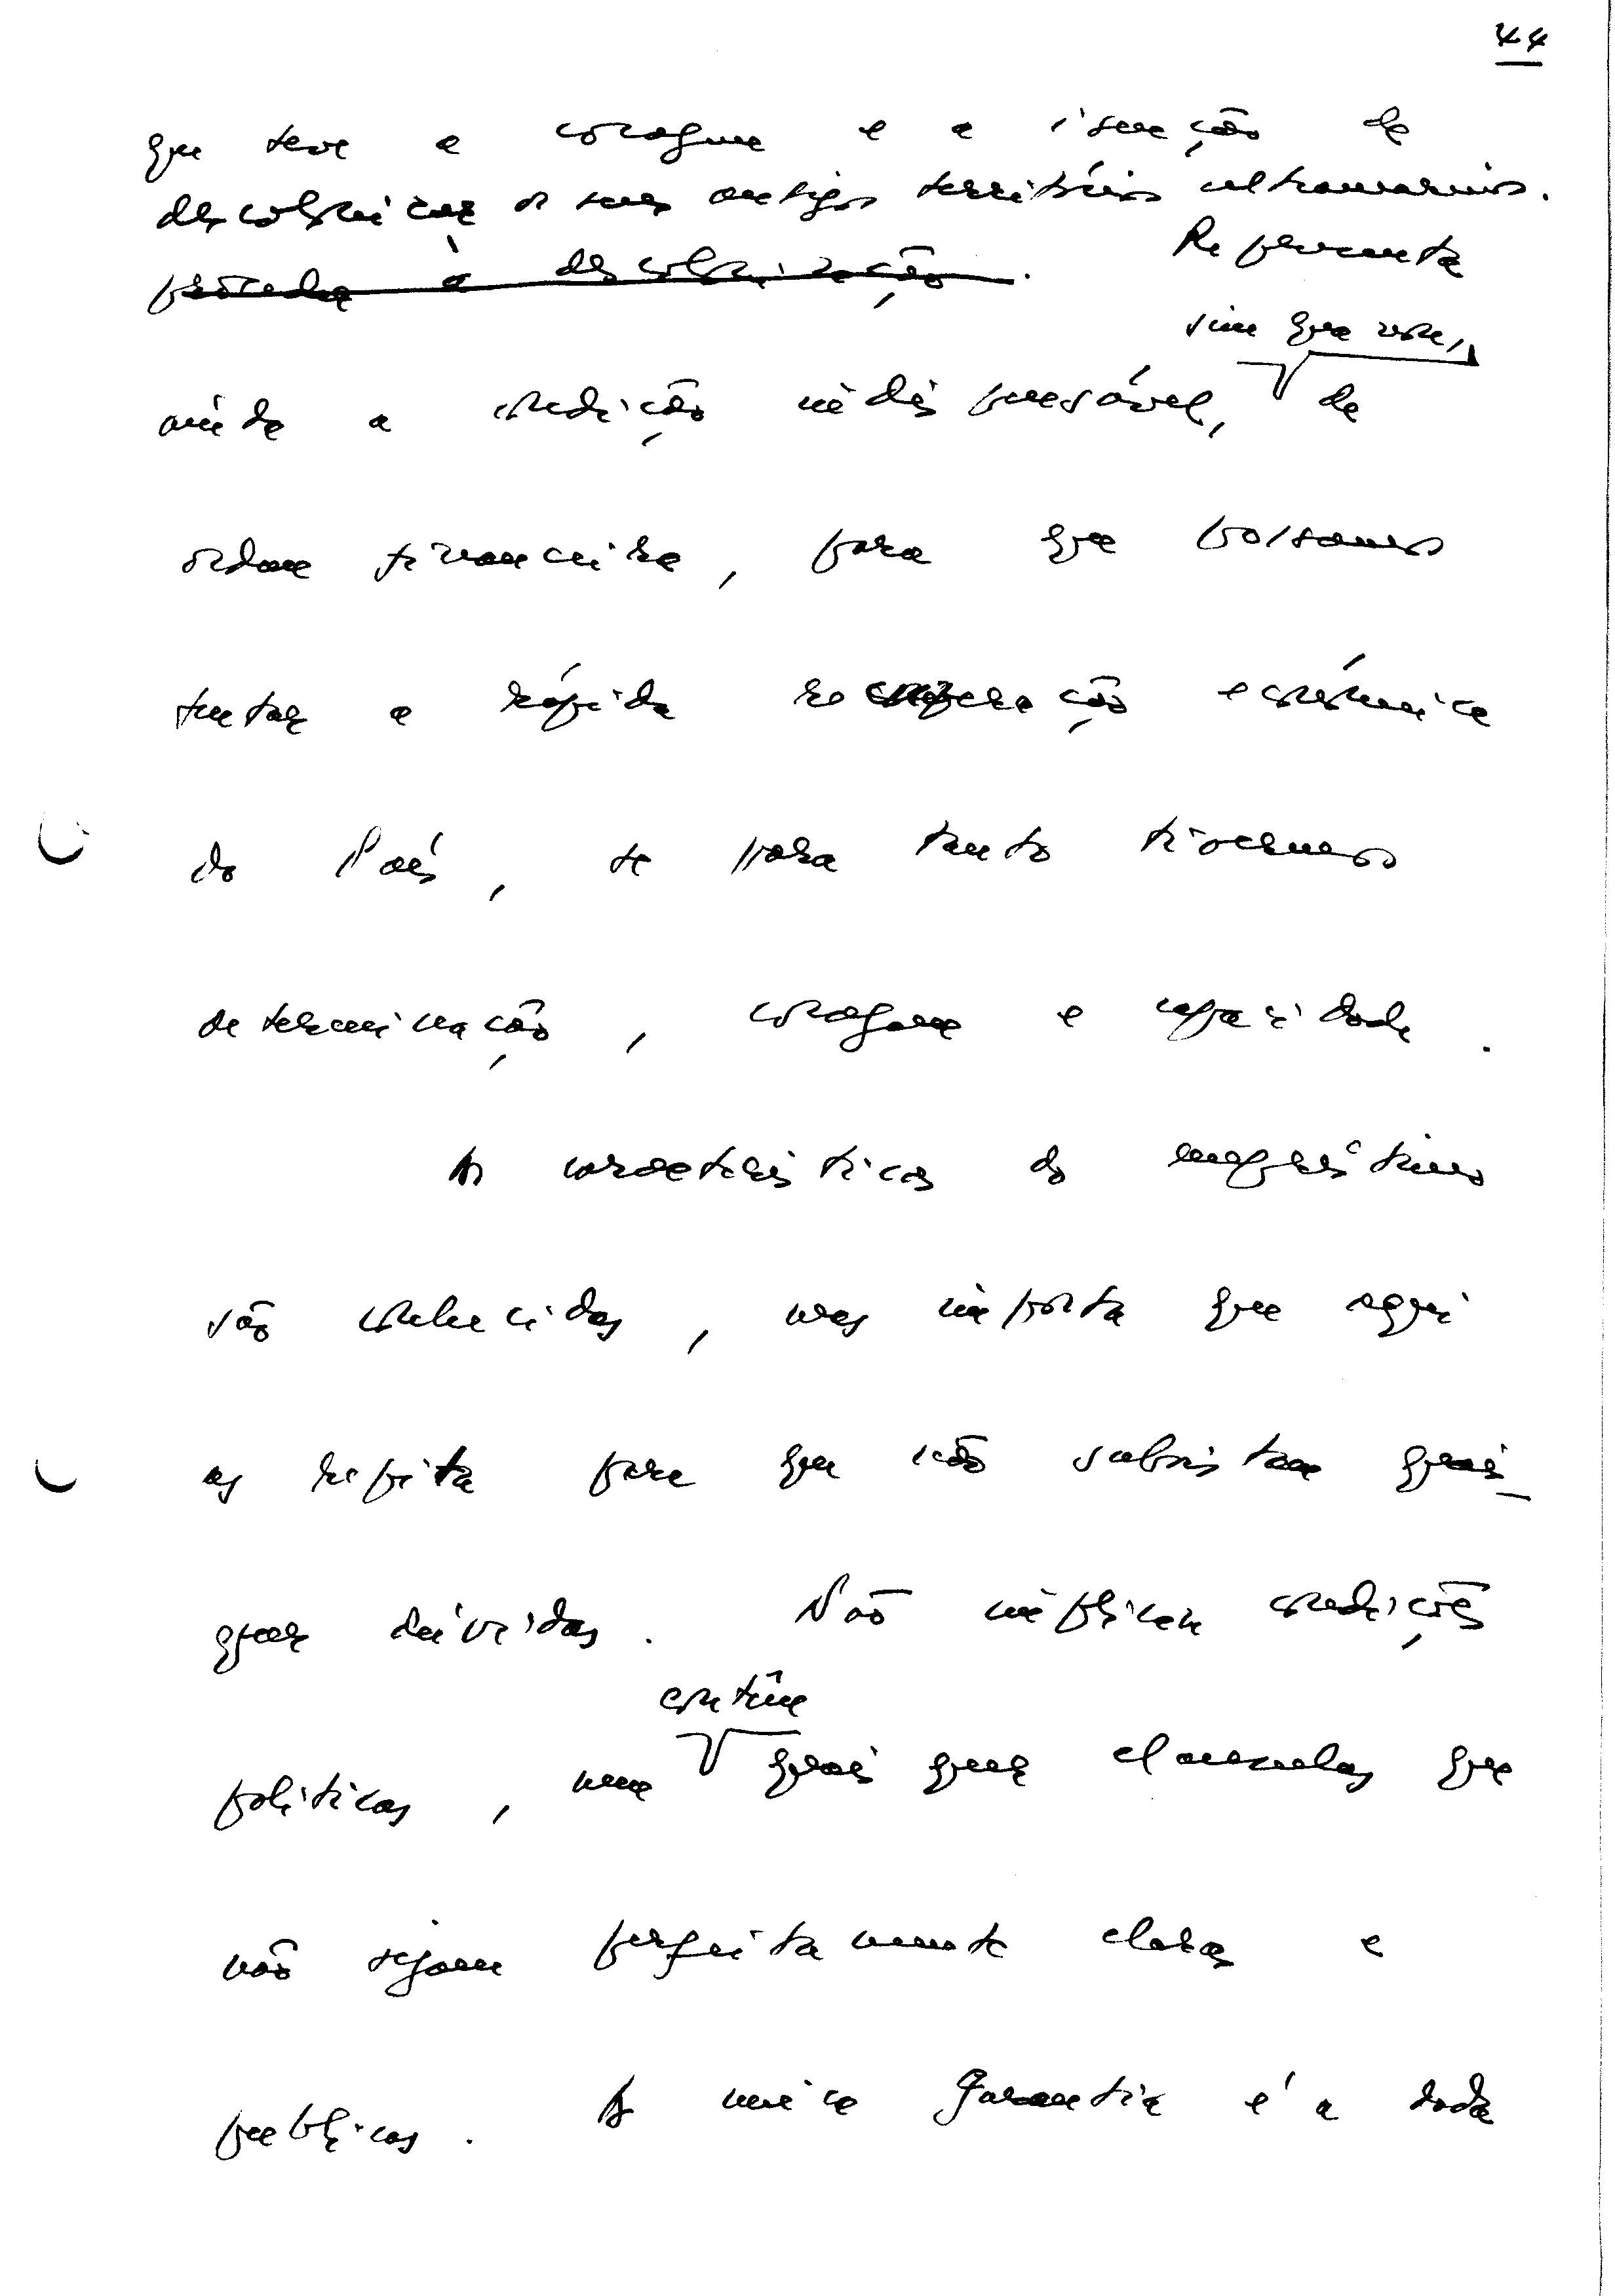 44
que teve a coragem e a isenção de
descolonizar os seus antigos territórios ultramarinos.
proceder à descolonização. Representa
sine qua non,
ainda a condição indispensável, de
ordem financeira, para que possamos
tentar a rápida recuperação económica
do País, se para tanto tivermos
determinação, coragem e capacidade.
As características do empréstimo
são conhecidas, mas importa que aqui
as repita para que não subsistam quais-
quer dúvidas. Não implica condições
contém
políticas, nem quaisquer clausulas que
não sejam perfeitamente claras e
publicas. A unica garantia é a dada